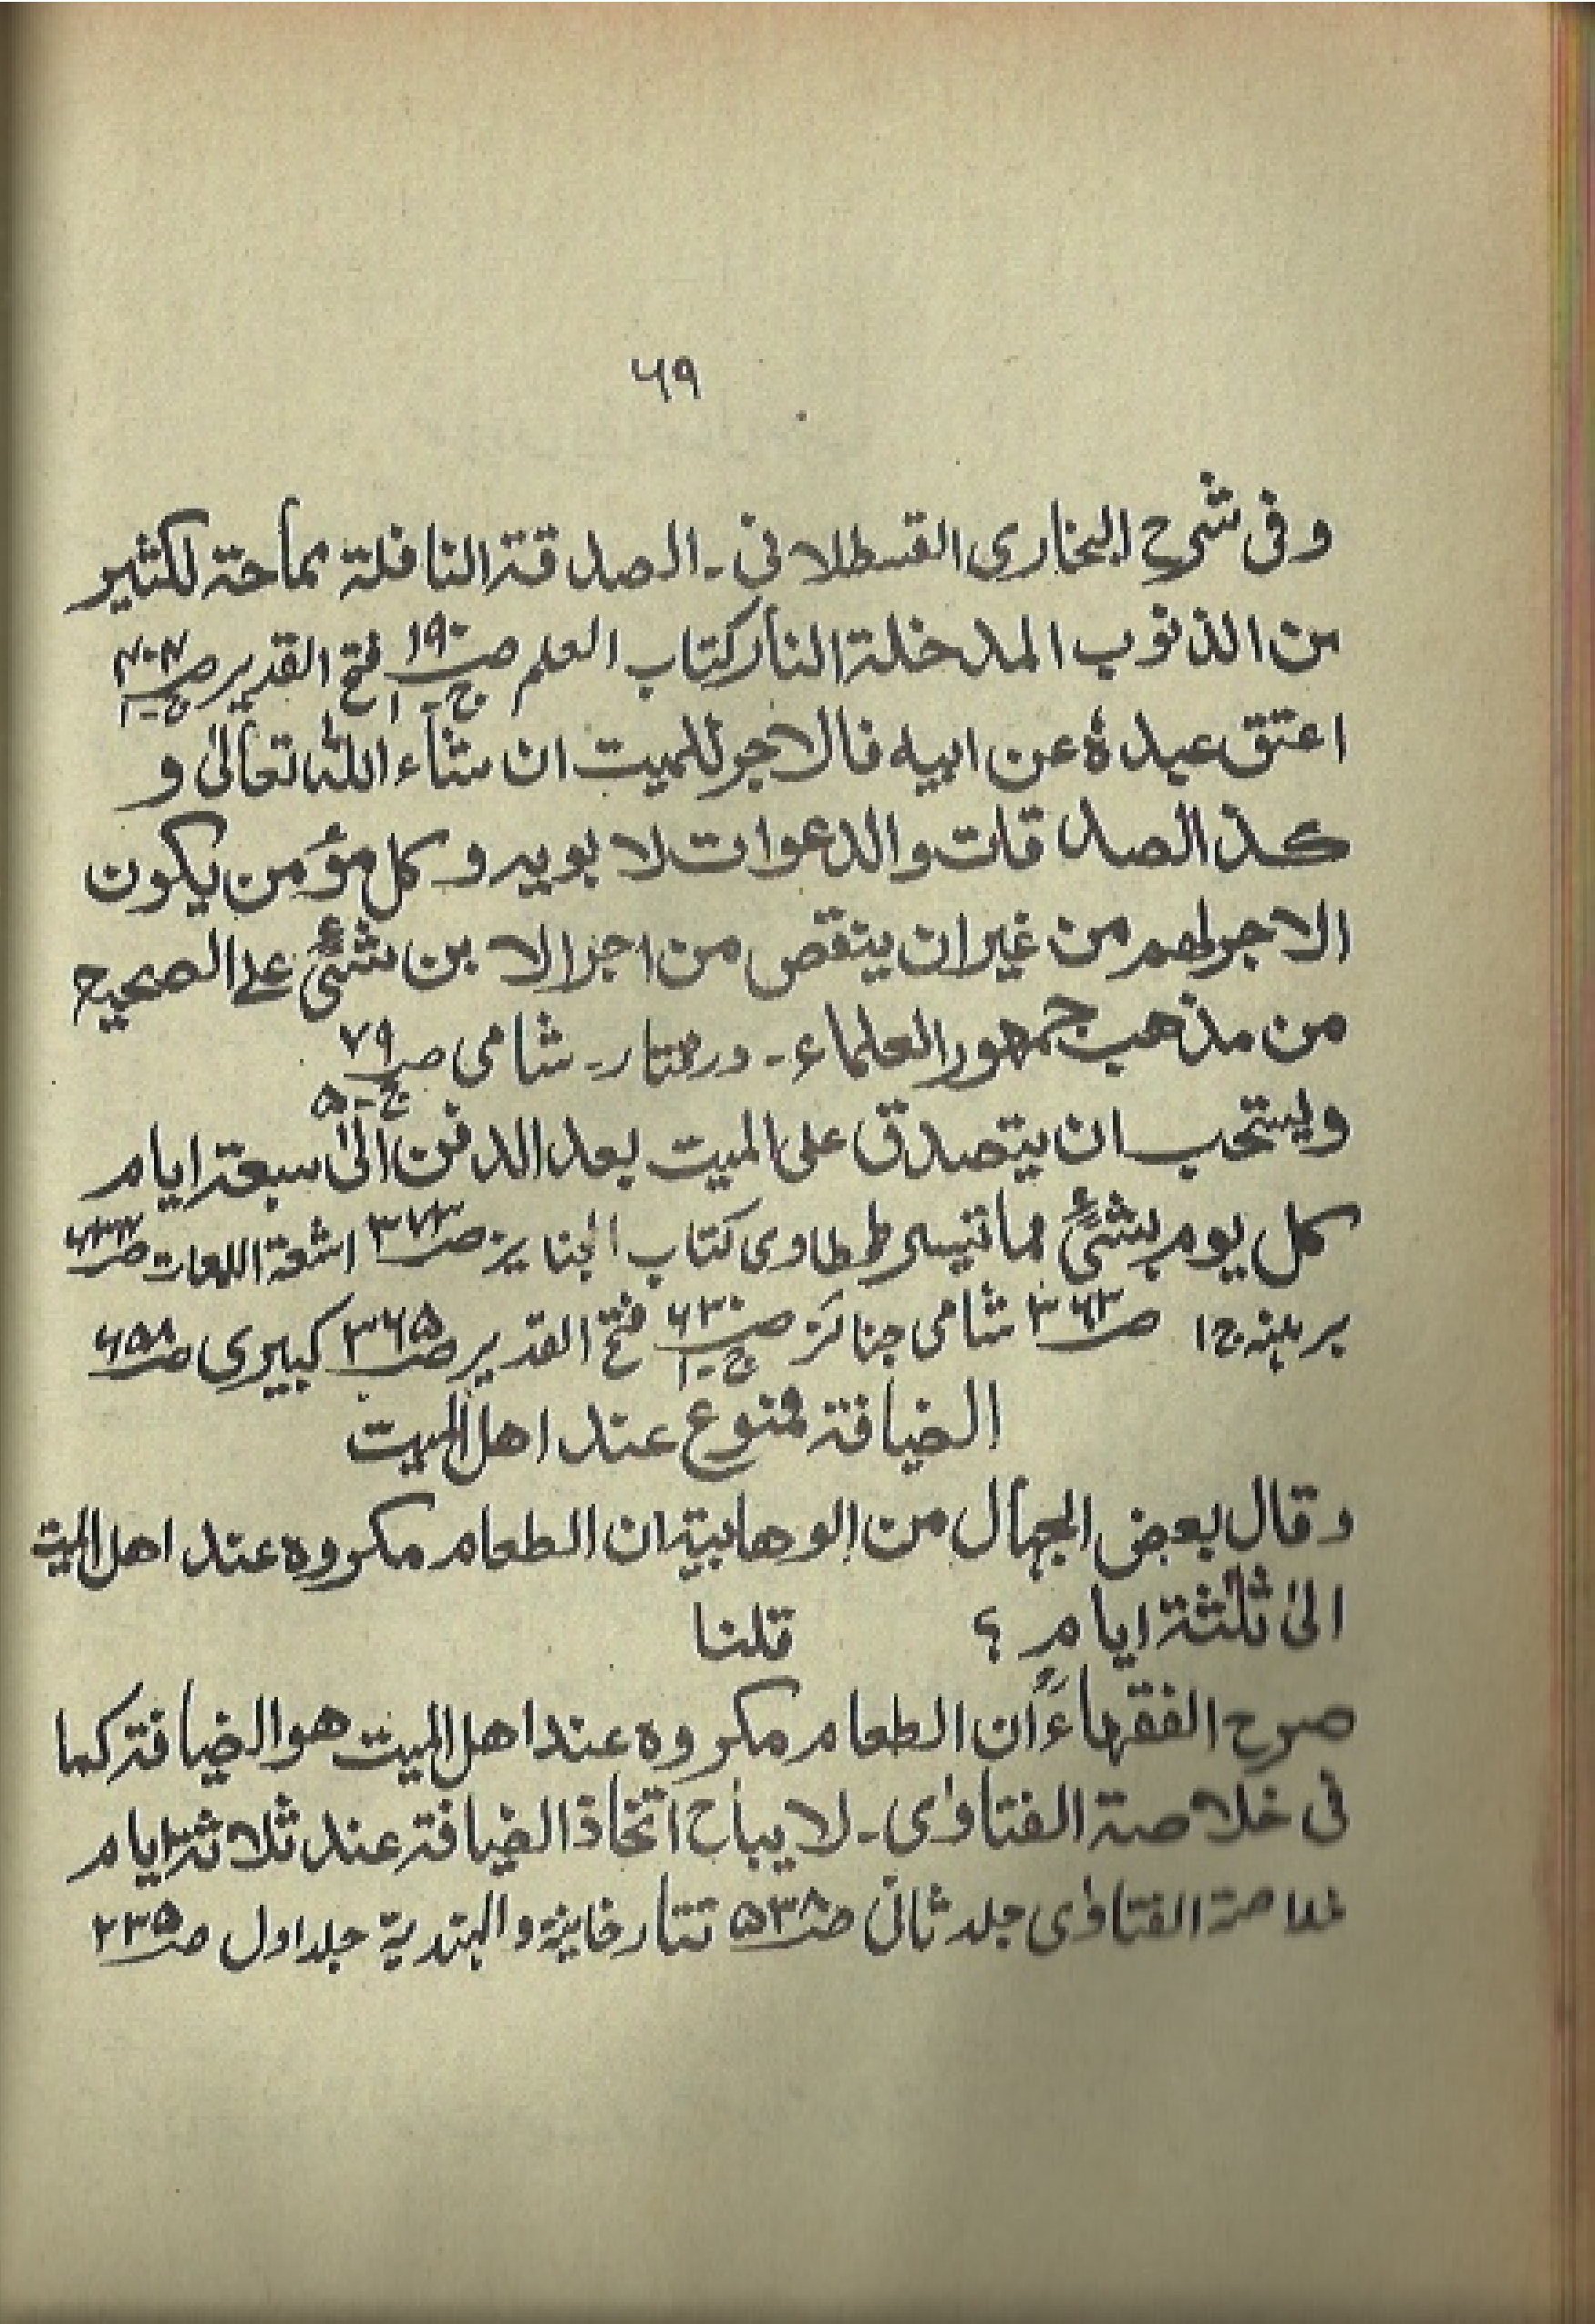 ۶۹
وفی شرح البخاری القسطلانی۔ الصدقۃ النافلۃ مماحۃ لکثیر
من الذنوب المدخلۃ النار کتاب العلم صـ۱۹۰ ج-۱ فتح القدیر صـ ج-۱
اعتق عبدہٗ عن ابیہ فالاجر للمیت ان شاء اللہ تعالٰی و
کذا الصدقات والدعوات لابویہ وکل مؤمن یکون
الاجر لھم من غیر ان ینقص من اجر الابن شئیٌ علی الصحیح
من مذھب جمھور العلماء۔ درمختار۔ شامی صـ۷۹ ج-۵
ویستحب ان یتصدق علی المیت بعد الدفن الٰی سبعۃ ایام
کل یوم بشئیٍ مما تیسر طحطاوی کتاب الجنایز صـ۳۷۳ اشعۃ اللمعات صـ
برہنہ ج۱ صـ۳۶۳ شامی جنائز صـ۶۳۰ ج-۱ فتح القدیر صـ۳۶۵ کبیری صـ۶۵۸
الضیافۃ ممنوع عند اھل المیت
وقال بعض الجہال من الوھابیۃ ان الطعام مکروہ عند اھل المیت
الیٰ ثلٰثۃ ایام ؟ قلنا
صرح الفقہاءُ أن الطعام مکروہ عند اھل المیت ھو الضیافۃ کما
فی خلاصۃ الفتاوٰی۔ لا یباح اتخاذ الضیافۃ عند ثلاثۃ ایام
خلاصۃ الفتاوٰی جلد ثانی صـ۵۳۸ تتارخانیۃ والہندیۃ جلد اول صـ۲۳۵